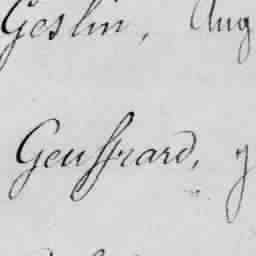 Geslin, Aug
Geuffrard, g